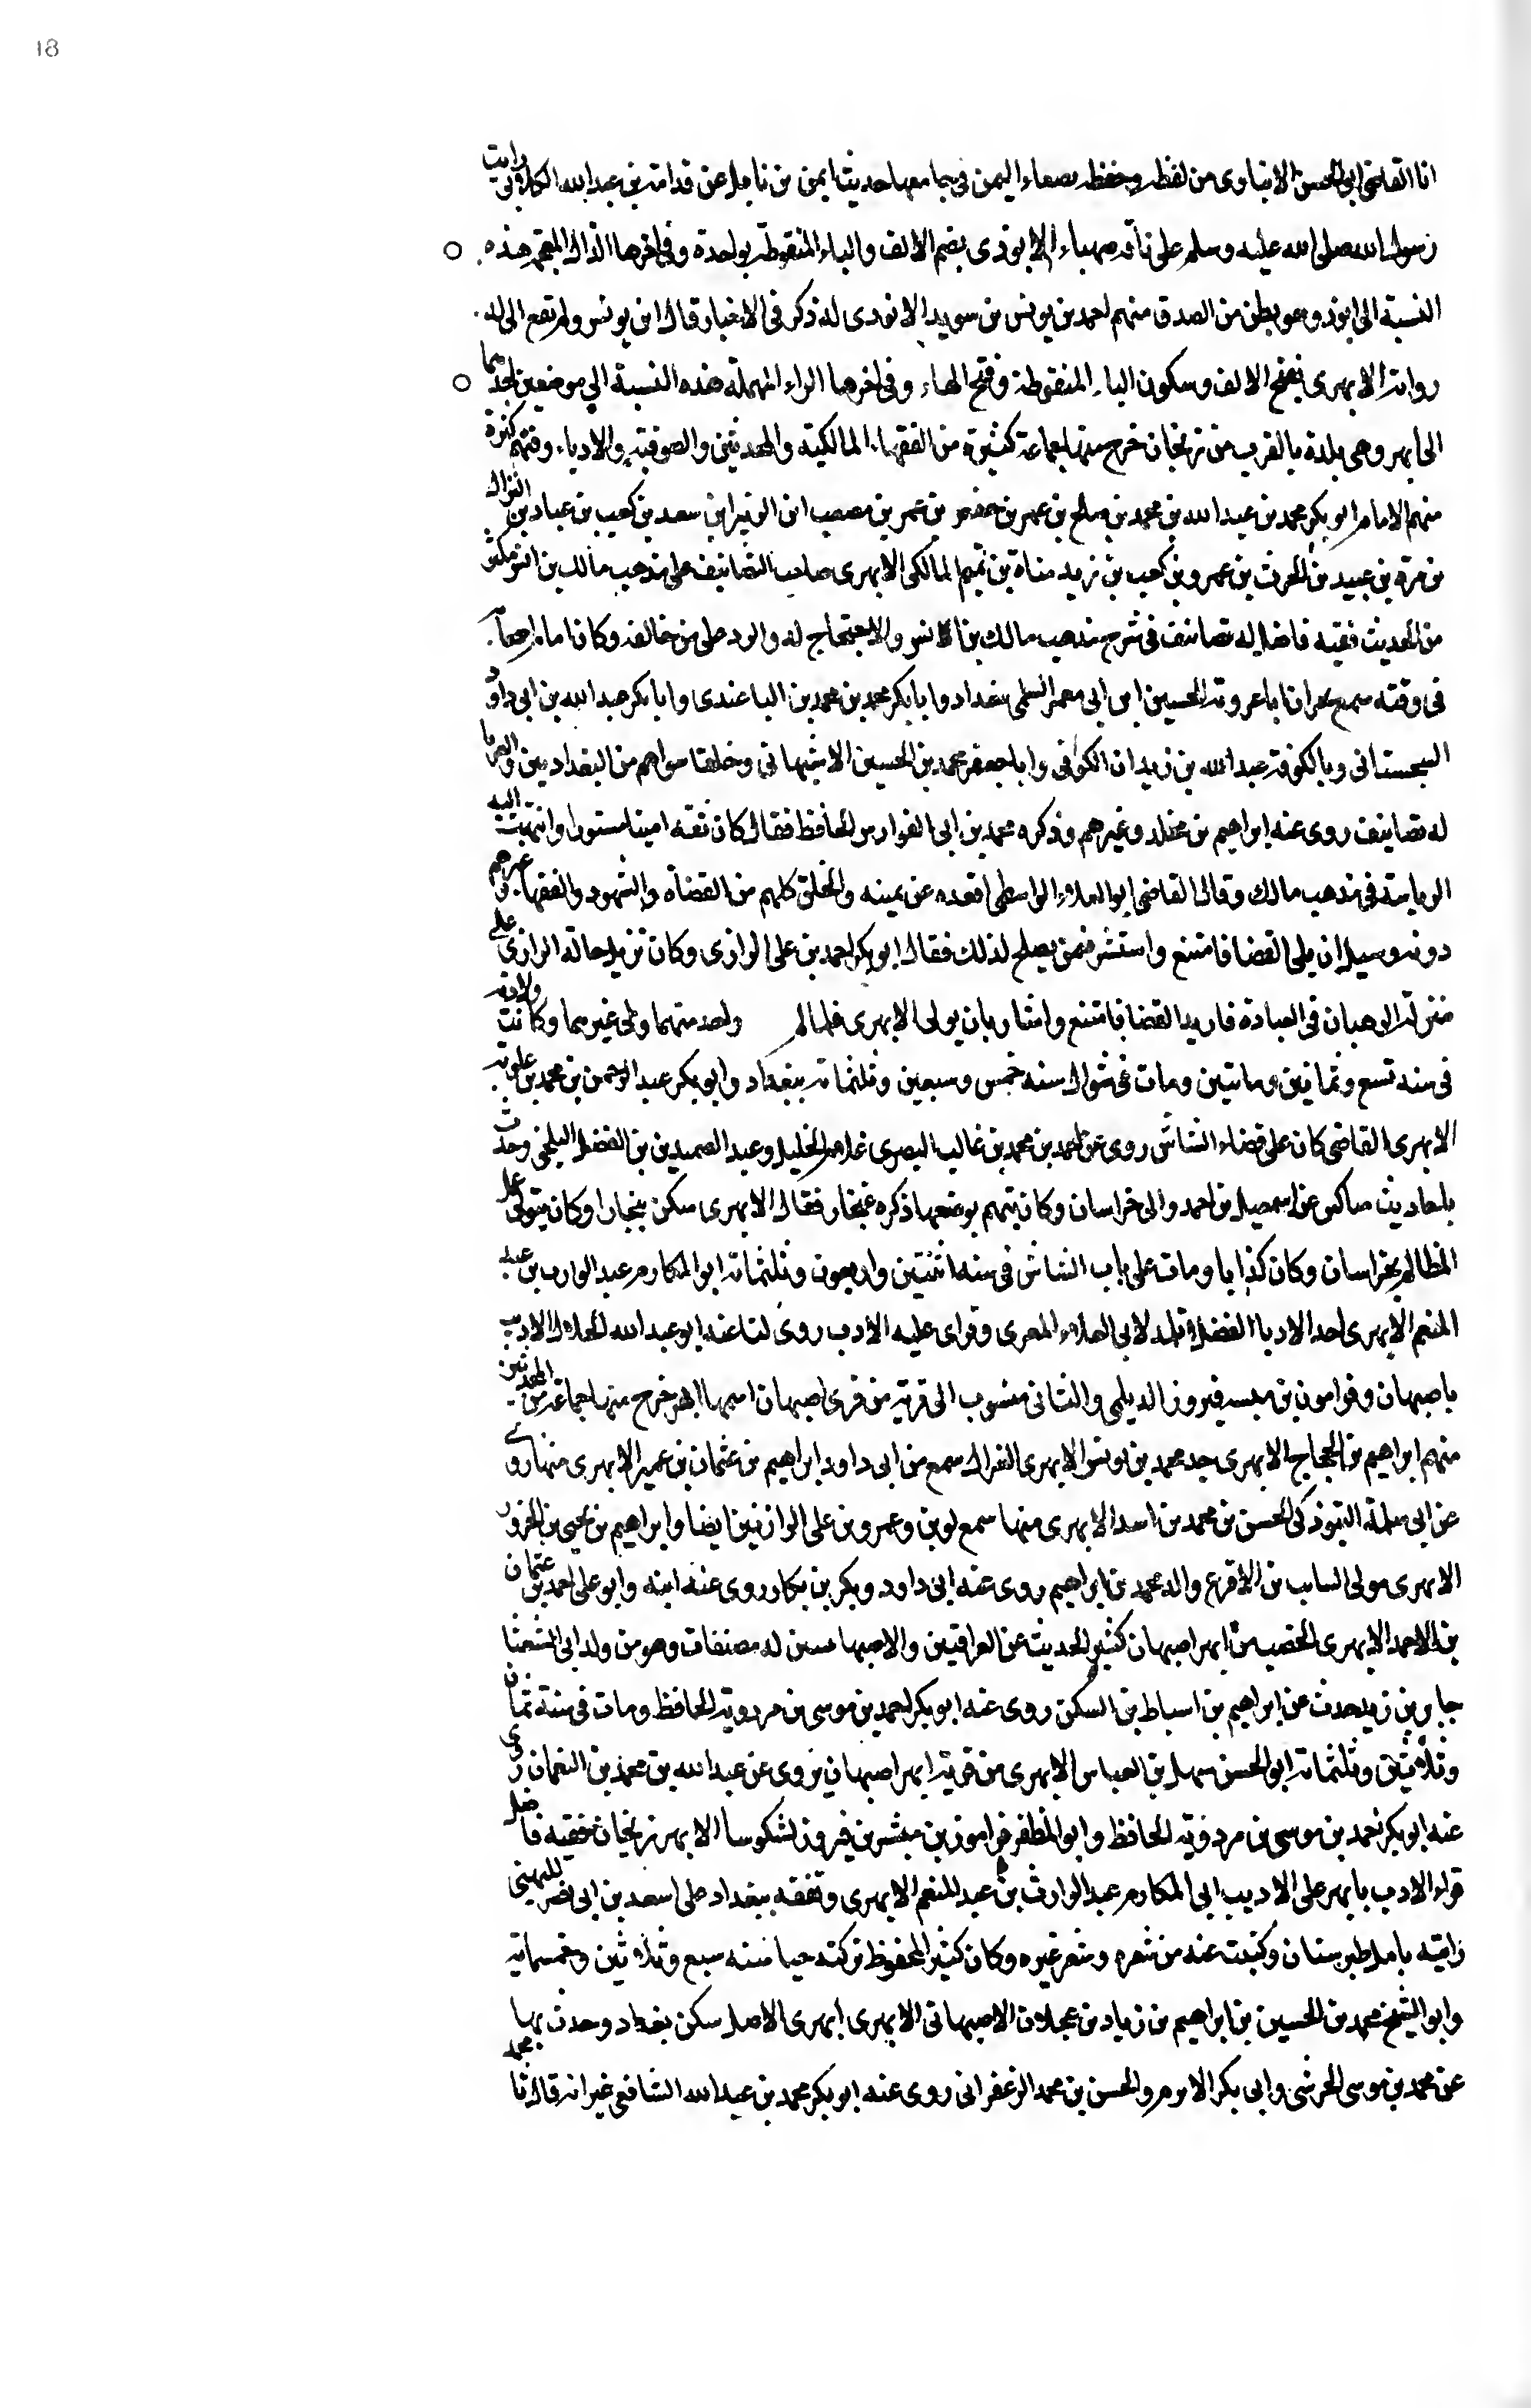 18
انا القاضى ابو الحسن الابناوى من لفظه وحفظه بصنعاء اليمن فى جامعها حديث ايمن بن نابل عن قدامة بن عبد الله الكلابى رايت
رسول الله صلى الله عليه وسلم على ناقة صهباء الابوذى بضم الالف والباء المنقوطة بواحدة وفى اخرها الذال المعجمة هذه
النسبة الى ابوذ وهو بطن من الصدف منهم احمد بن يونس بن سويد الابوذى له ذكر فى الاخبار قال ابن يونس ولم تقع الى له
رواية الابهرى بفتح الالف وسكون الباء المنقوطة وفتح الهاء وفى اخرها الراء المهملة هذه النسبة الى موضعين احدهما
الى ابهر وهى بلدة بالقرب من زنجان خرج منها جماعة كثيرة من الفقهاء المالكية والمحدثين والصوفية والادباء وفيهم كثرة
منهم الامام ابو بكر محمد بن عبد الله بن محمد بن صالح بن عمر بن حفص بن عمر بن مصعب ابن الزبير ابن سعد بن كعب بن عباد بن النزال
بن مرة بن عبيد بن الحرث بن عمرو بن كعب بن زيد مناة بن تميم المالكى الابهرى صاحب التصانيف على مذهب مالك بن انس مكثر
من الحديث فقيه فاضل له تصانيف فى شرح مذهب مالك بن انس والاحتجاج له والرد على من خالفه وكان امام اصحابه
فى وقته سمع بحران ابا عروبة الحسين ابن ابى معشر السلمى ببغداد وابا بكر محمد بن محمد بن الباغندى وابا بكر عبد الله بن ابى داود
السجستانى وبالكوفة عبد الله بن زيدان الكوفى وابا جعفر محمد بن الحسين الاشنانى وخلقا سواهم من البغداديين والغربا
له تصانيف روى عنه ابراهيم بن مخلد وغيرهم وذكره محمد بن ابى الفوارس الحافظ فقال كان ثقة امينا مستورا وانتهت اليه
الرياسة فى مذهب مالك وقال القاضى ابو العلاء الواسطى اقعده عن يمينه والخلق كلهم من القضاة والشهود والفقهاء وغيرهم
دونه وسيل ان يلى القضا فامتنع واستشير فيمن يصلح لذلك فقال ابو بكر احمد بن على الرازى وكان تزيد حالة الرازى على
منزلة الرهبان فى العبادة فاريد القضا فامتنع واشار بان يولى الابهرى فلما لم واحد منهما ولى غيرهما وكانت ولادته
فى سنة تسع وثمانين ومايتين ومات فى شوال سنة خمس وسبعين وثلثماية ببغداد وابو بكر عبد الرحمن بن محمد بن علوية
الابهرى القاضى كان على قضاء الشاش روى عن احمد بن محمد بن غالب البصرى غلام الخليل وعبد الصمد بن الفضل البلخى وحدث
باحاديث مناكير عن اسمعيل بن احمد والى خراسان وكان يتهم بوضعها ذكره غنجار فقال الابهرى سكن بخارا وكان يتولى عمل
المظالم بخراسان وكان كذابا ومات على باب الشاش فى سنة اثنتين واربعون وثلثماية ابو المكارم عبد الوارث بن عبد
المنعم الابهرى احد الادبا الفضلا تلمذ لابى العلاء المعرى وقراى عليه الادب روى لنا عنه ابو عبد الله الخلال الاديب
باصبهان وفرامون بن ميسه فيروز الديلمى والثانى منسوب الى قرية من قرى اصبهان اسمها ابهر خرج منها جماعة من المحدثين
منهم ابراهيم بن الحجاج الابهرى جد محمد بن يونس الابهرى الغزال سمع من ابى داود ابراهيم بن عثمان بن عمير الابهرى منها روى
عن ابى سلمة التبوذكى الحسن بن محمد بن اسد الابهرى منها سمع لوين وعمرو بن على الرازيين ايضا وابراهيم بن يحيى بن الحزور
الابهرى مولى السايب بن الاقرع والد محمد بن ابراهيم روى عنه ابى داود وبكر بن بكار روى عنه ابنه وابو على احمد بن عثمان
بن الاحمد الابهرى الخصيب من ابهر اصبهان كثير الحديث عن العراقيين والاصبهانيين له مصنفات وهو من ولد ابى الشعثا
جابر بن زيد حدث عن ابراهيم بن اسباط بن السكن روى عنه ابو بكر احمد بن موسى بن مردوية الحافظ ومات فى سنة ثمان
وثلاثين وثلثماية ابو الحسن سهل بن العباس الابهرى من قرية ابهر اصبهان يروى عن عبد الله بن محمد بن النعمان روى
عنه ابو بكر احمد بن موسى بن مردوية الحافظ وابو المظفر فرامون بن مبشر بن فيروز لشكوسا الابهر زنجان فقيه فاضل
قراء الادب بابهر على الاديب ابى المكارم عبد الوارث بن عبد المنعم الابهرى وتفقه ببغداد على اسعد بن ابى نصر الميهنى
رايته بامل طبرستان وكتبت عنه من شعره وشعر غيره وكان كثير المحفوظ تركته حيا سنة سبع وثلاثين وخمسماية
وابو الشيخ محمد بن الحسين بن ابراهيم بن زياد بن عجلان الاصبهانى الابهرى ابهرى الاصل سكن بغداد وحدث بها
عن محمد بن موسى الحرشى وابى بكر الاثرم والحسن بن محمد الزعفرانى روى عنه ابو بكر محمد بن عبد الله الشافعى غير انه قال ثنا محمد